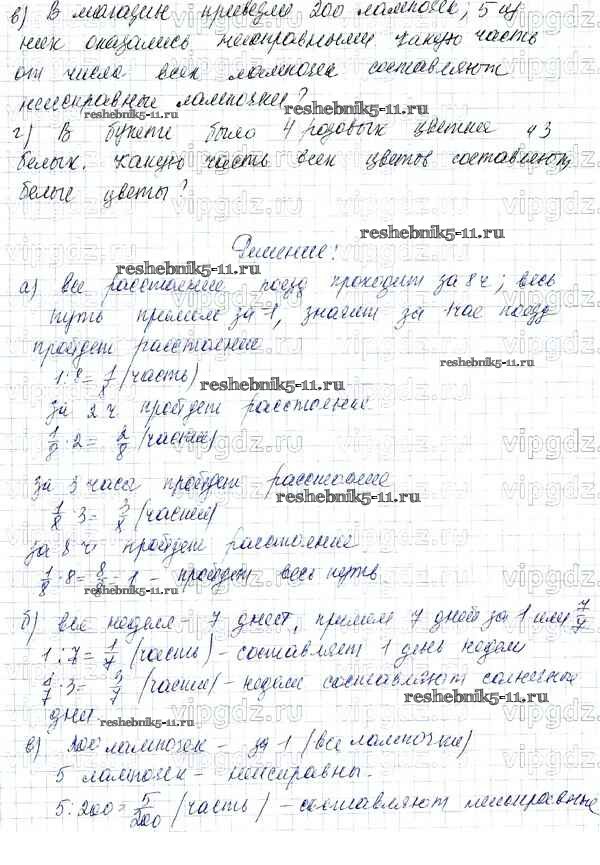 в) В магазин привезли 200 лампочек; 5 из
них оказались неисправными какую часть
от числа всех лампочек составляют
неисправные лампочки?
reshebnik5-11.ru
г) В букете было 4 розовых цветка и 3
белых. Какую часть всех цветов составляют
белые цветы?
reshebnik5-11.ru
Решение:
reshebnik5-11.ru
а) все расстояние поезд проходит за 8 ч; весь
путь примем за 1, значит за 1 час поезд
пройдет расстояние
reshebnik5-11.ru
1:8= 1/8 (часть)
reshebnik5-11.ru
за 2 ч пройдет расстояние
1/8 · 2 = 2/8 (части)
за 3 часа пройдет расстояние
reshebnik5-11.ru
1/8 · 3= 3/8 (части)
за 8 ч пройдет расстояние
1/8 · 8 = 8/8 = 1 - пройдет весь путь
reshebnik5-11.ru
б) вся неделя - 7 дней, примем 7 дней за 1 или 7/7
1:7= 1/7 (часть) - составляет 1 день недели
1/7 · 3= 3/7 (части) - недели составляют солнечные
reshebnik5-11.ru
дни
reshebnik5-11.ru
в) 200 лампочек - за 1 (все лампочки)
5 лампочек - неисправны.
reshebnik5-11.ru
5:200= 5/200 (часть) - составляют неисправные
vipgdz.ru